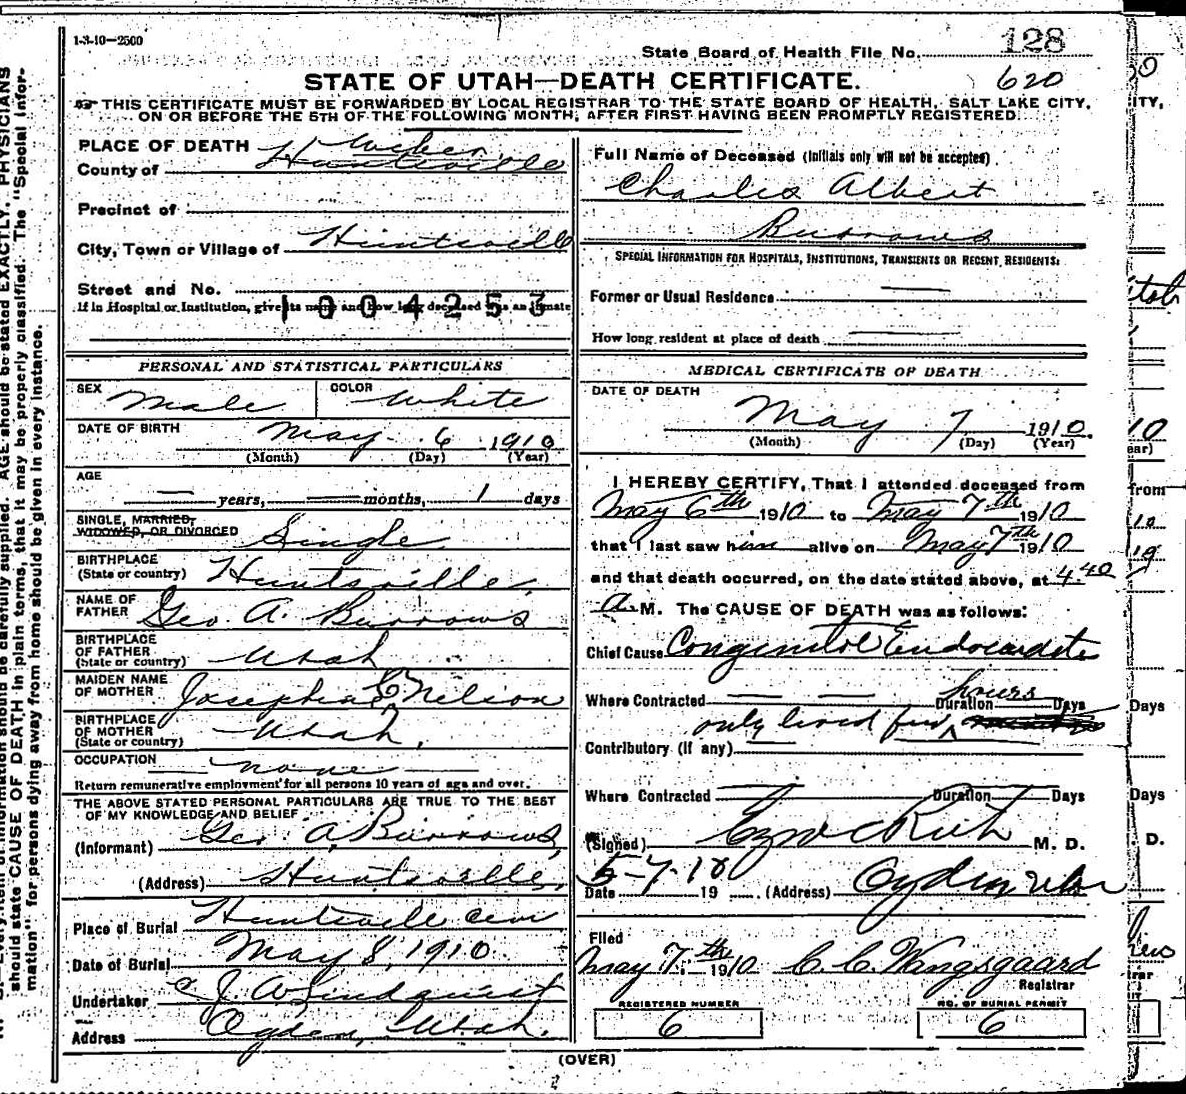 1-3-10—2500
State Board of Health File No. 128
STATE OF UTAH—DEATH CERTIFICATE. 620
THIS CERTIFICATE MUST BE FORWARDED BY LOCAL REGISTRAR TO THE STATE BOARD OF HEALTH, SALT LAKE CITY,
ON OR BEFORE THE 5TH OF THE FOLLOWING MONTH, AFTER FIRST HAVING BEEN PROMPTLY REGISTERED.
PLACE OF DEATH Weber
County of Huntsville
Precinct of
City, Town or Village of Huntsville
Street and No.
If in Hospital or Institution, give its name and how long deceased was an inmate
1004253
PERSONAL AND STATISTICAL PARTICULARS
SEX Male COLOR White
DATE OF BIRTH May 6 1910
(Month) (Day) (Year)
AGE
— years, — months, 1 days
SINGLE, MARRIED,
WIDOWED, OR DIVORCED Single
BIRTHPLACE
(State or country) Huntsville
NAME OF
FATHER Geo A. Burrows
BIRTHPLACE
OF FATHER
(State or country) Utah
MAIDEN NAME
OF MOTHER Josephine E Nelson
BIRTHPLACE
OF MOTHER
(State or country) Utah.
OCCUPATION — none —
Return remunerative employment for all persons 10 years of age and over.
THE ABOVE STATED PERSONAL PARTICULARS ARE TRUE TO THE BEST
OF MY KNOWLEDGE AND BELIEF
(Informant) Geo. A. Burrows,
(Address) Huntsville,
Place of Burial Huntsville cem
Date of Burial May 8, 1910
Undertaker C J A Lindquist
Address Ogden, Utah.
Full Name of Deceased (Initials only will not be accepted)
Charles Albert
Burrows
SPECIAL INFORMATION FOR HOSPITALS, INSTITUTIONS, TRANSIENTS OR RECENT RESIDENTS:
Former or Usual Residence —
How long resident at place of death —
MEDICAL CERTIFICATE OF DEATH
DATE OF DEATH
May 7 1910.
(Month) (Day) (Year)
I HEREBY CERTIFY, That I attended deceased from
May 6th 1910 to May 7th 1910
that I last saw him alive on May 7th 1910
and that death occurred, on the date stated above, at 4.40
a.M. The CAUSE OF DEATH was as follows:
Chief Cause Congenital Endocarditis
Where Contracted — — Duration hours Days
only lived few
Contributory (if any) —
Where Contracted — Duration — Days
(Signed) Ezra C Rich M. D.
Date 5-7-10 19 (Address) Ogden Utah
Filed
May 7th 1910 C. C. Wangsgaard
Registrar
REGISTERED NUMBER NO. OF BURIAL PERMIT
6 6
(OVER)
should state CAUSE OF DEATH in plain terms, that it may be properly classified. The "Special Infor-
mation" for persons dying away from home should be given in every instance.